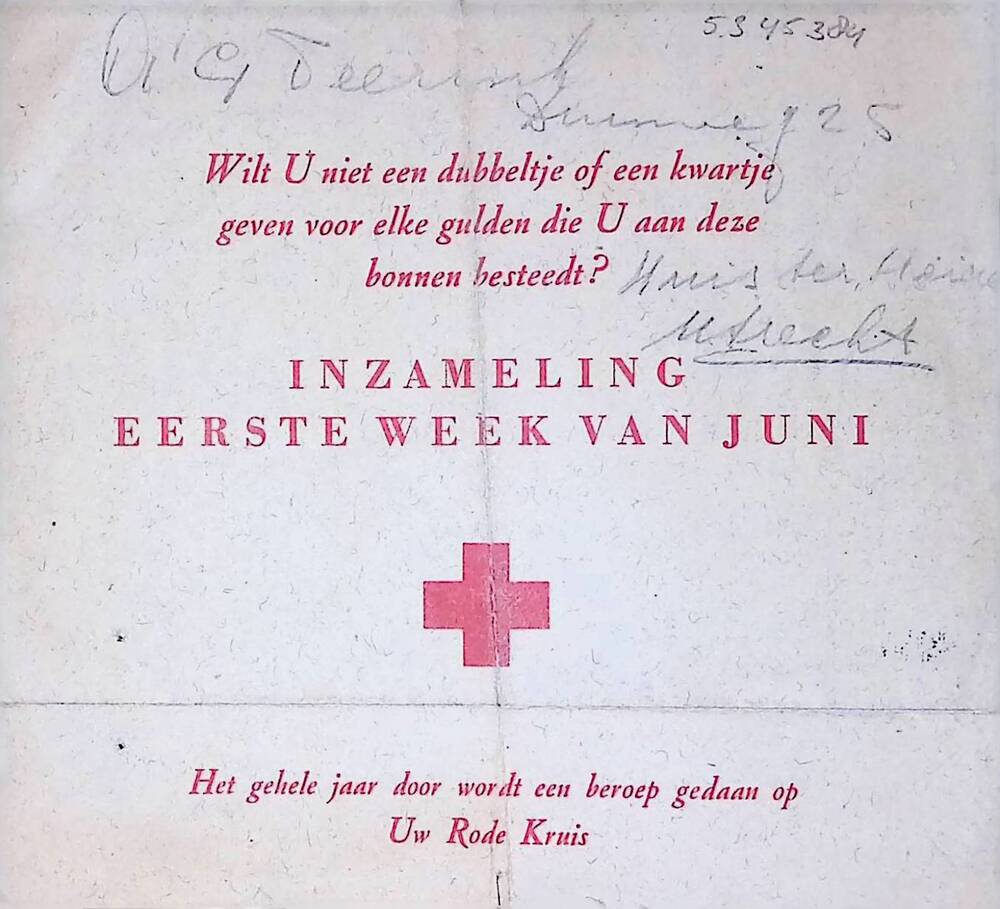 5345384
G Teerink
Duinweg 25
Wilt U niet een dubbeltje of een kwartje
geven voor elke gulden die U aan deze
bonnen besteedt?
Huis ter Heide
Utrecht
INZAMELING
EERSTE WEEK VAN JUNI
Het gehele jaar door wordt een beroep gedaan op
Uw Rode Kruis